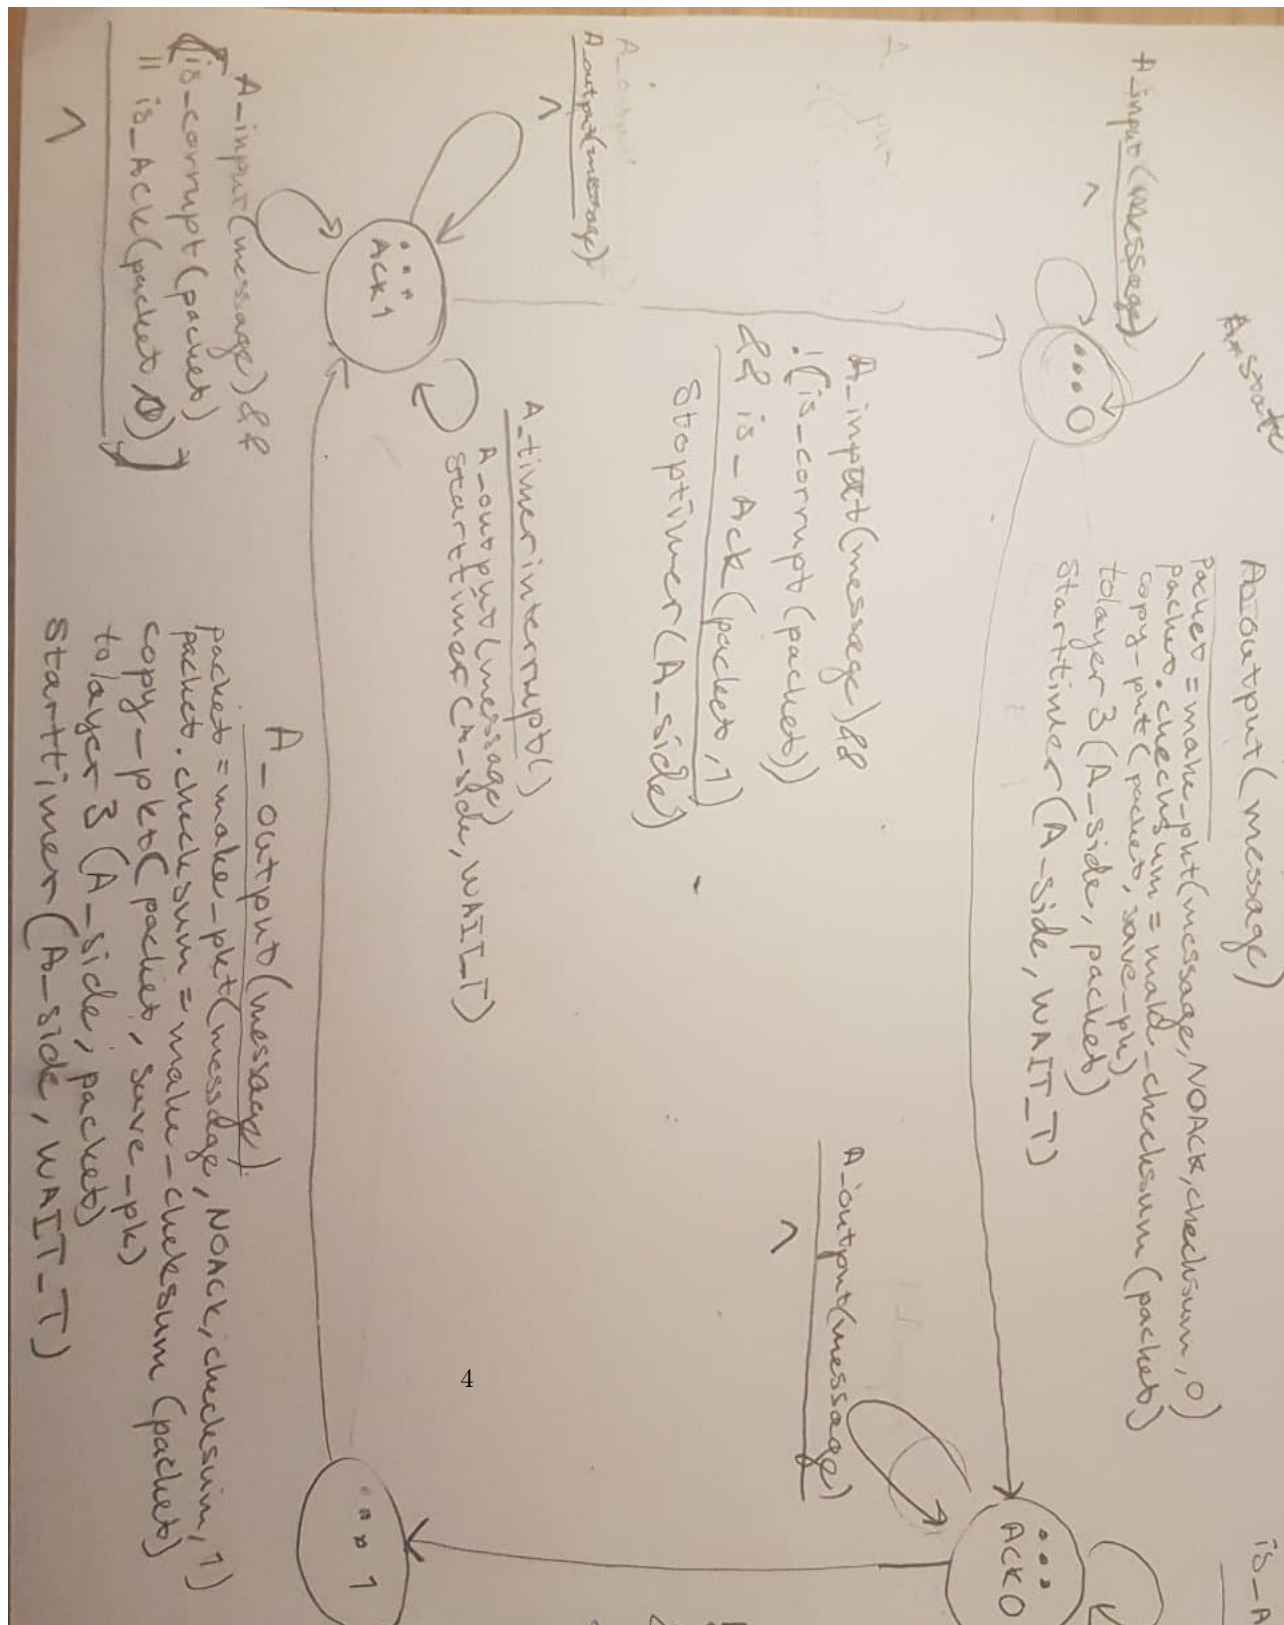 A_state
A_input(message)
^
...0
A_output(message)
packet=make_pkt(message,NOACK,checksum,0)
packet.checksum = make_checksum(packet)
copy_pkt(packet, save_pk)
tolayer3(A_side, packet)
starttimer(A_side, WAIT_T)
is_A
... ACK0
A_output(message)
^
A_input(message)&&
!(is_corrupt(packet))
&& is_Ack(packet,1)
Stoptimer(A_side)
A_output(message)
^
... ACK1
A_timerinterrupt()
A_output(message)
starttimer(A_side, WAIT_T)
A_input(message)&&
[(is_corrupt(packet)
|| is_ACK(packet,0))]
^
A_output(message)
packet=make_pkt(message,NOACK,checksum,1)
packet.checksum = make_checksum(packet)
copy_pkt(packet, save_pk)
tolayer3(A_side, packet)
starttimer(A_side, WAIT_T)
... 1
4